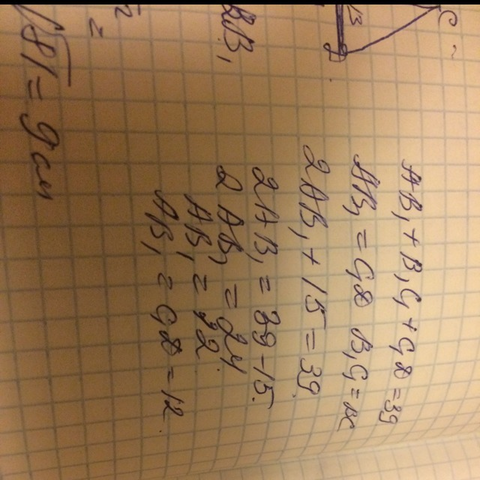 C
B
D
AB₁ + B₁C₁ + C₁D = 39
AB₁ = C₁D B₁C₁ = x
2AB₁ + 15 = 39
2AB₁ = 39 - 15.
2AB₁ = 24
AB₁ = 12.
AB₁ = C₁D = 12.
BB₁
√81 = 9 см